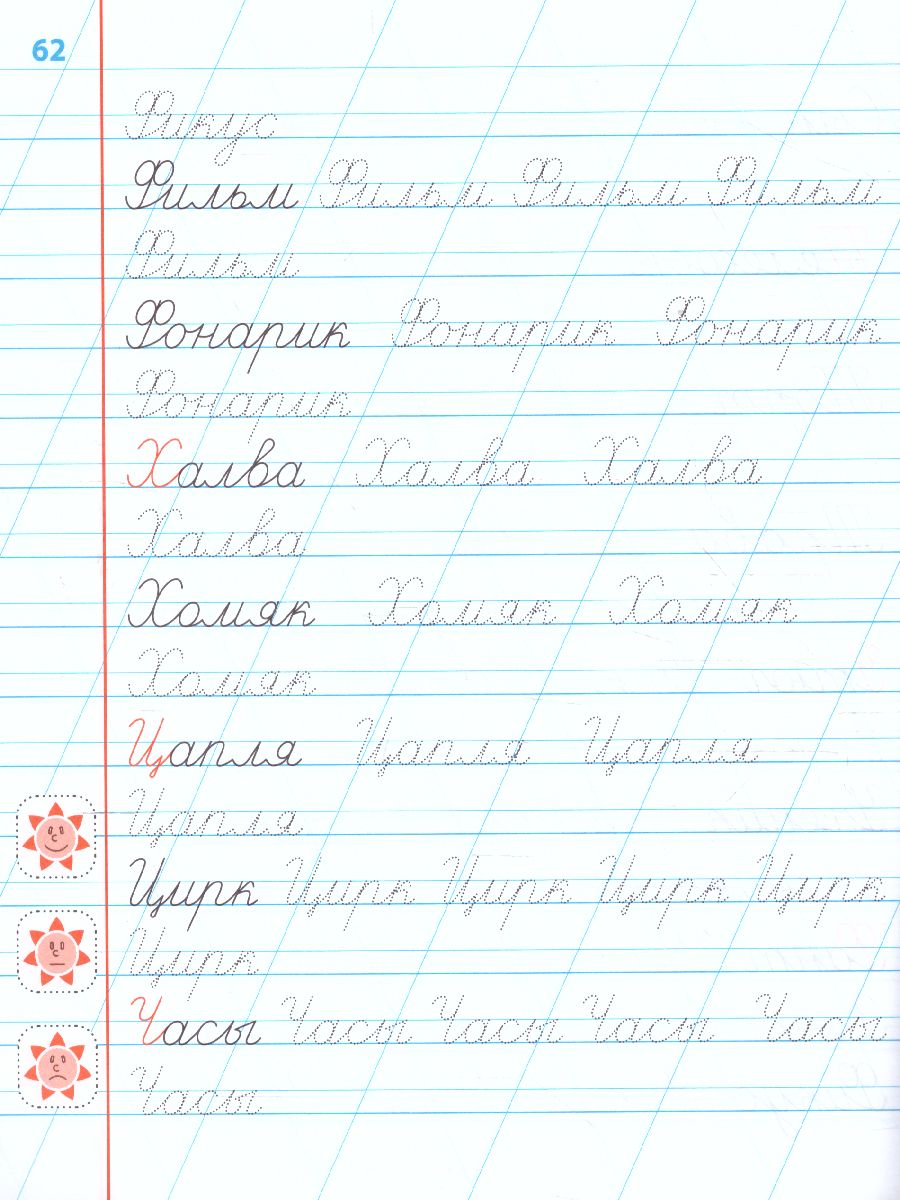 62
Фикус
Фильм Фильм Фильм Фильм
Фильм
Фонарик Фонарик Фонарик
Фонарик
Халва Халва Халва
Халва
Хомяк Хомяк Хомяк
Хомяк
Цапля Цапля Цапля
Цапля
Цирк Цирк Цирк Цирк Цирк
Цирк
Часы Часы Часы Часы Часы
Часы